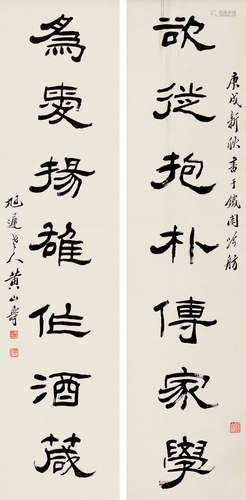 欲從抱朴傳家學
庚戌新秋書于鐵周
為愛揚雄作酒箴
旭遲老人黃山壽